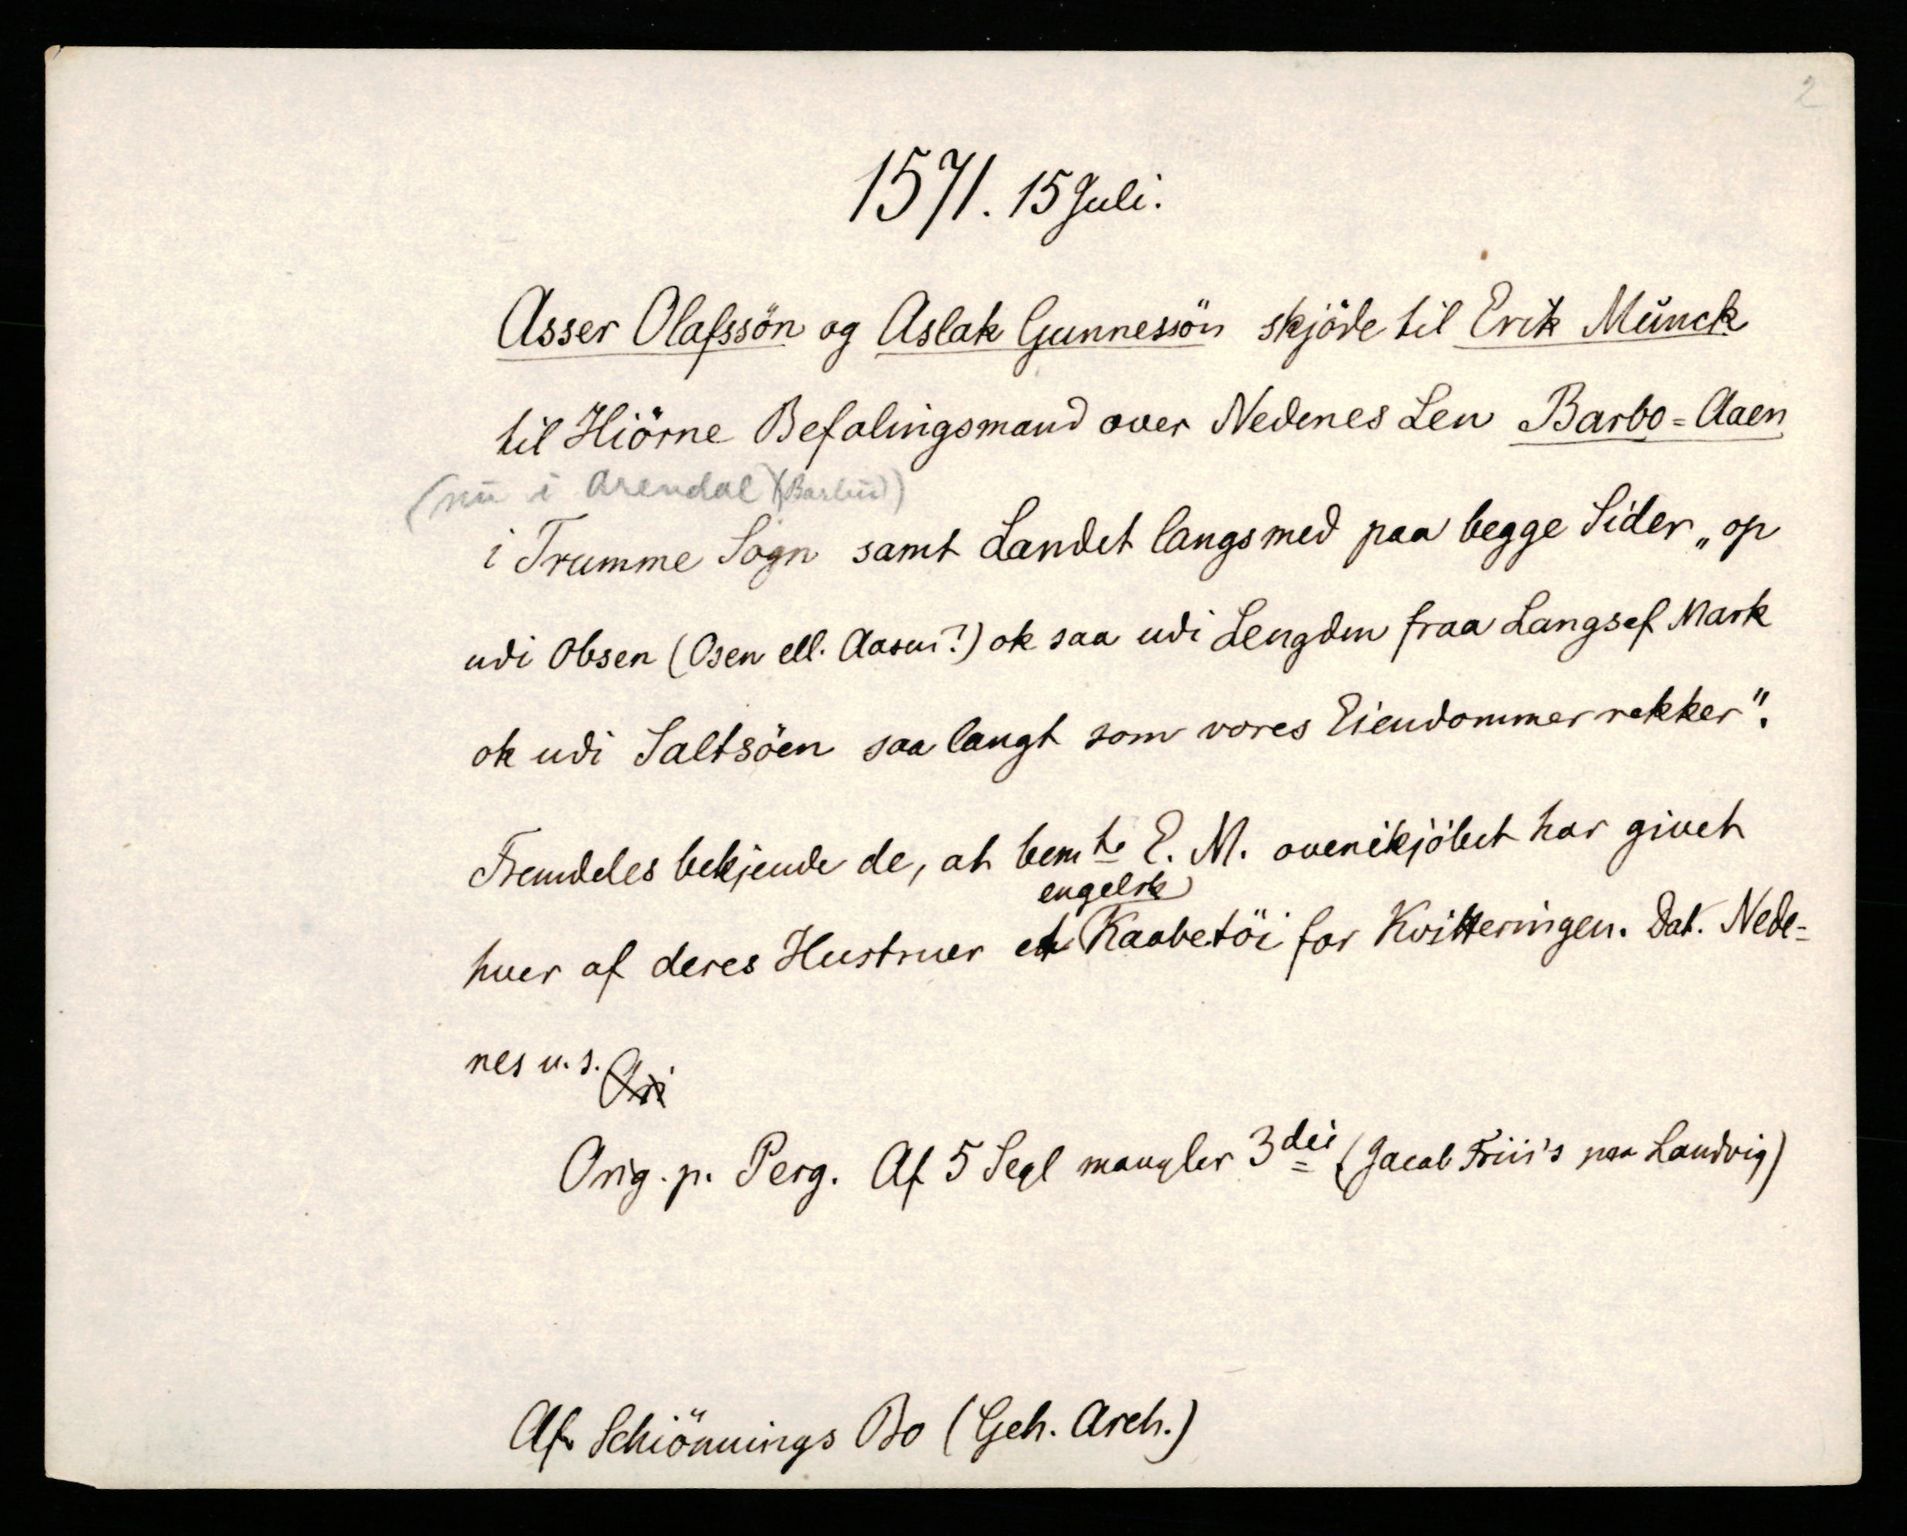 2
1571. 15 Juli.
Asser Olafssön og Aslak Gunnessön skjöde til Erik Munck
til Hiörne Befalingsmand over Nedenes Len Barbo=Aaen
(nu i Arendal) (Barbu)
i Trumme Sogn samt Landet langsmed paa begge Sider „op
udi Obsen (Osen ell. Aasen?) ok saa udi Lengden fraa Langsef Mark
ok udi Saltsöen saa langt som vores Eiendommer rekker".
Fremdeles bekjende de, at bemte E. M. ovenikjöbet har givet
engelsk
hver af deres Hustruer et Kaabetöi for Kvitteringen. Dat. Nede-
nes u. s. Ori
Orig. p. Perg. Af 5 Segl mangler 3dei (Jacob Friis's paa Landvig)
Af Schiönnings Bo (Geh. Arch.)